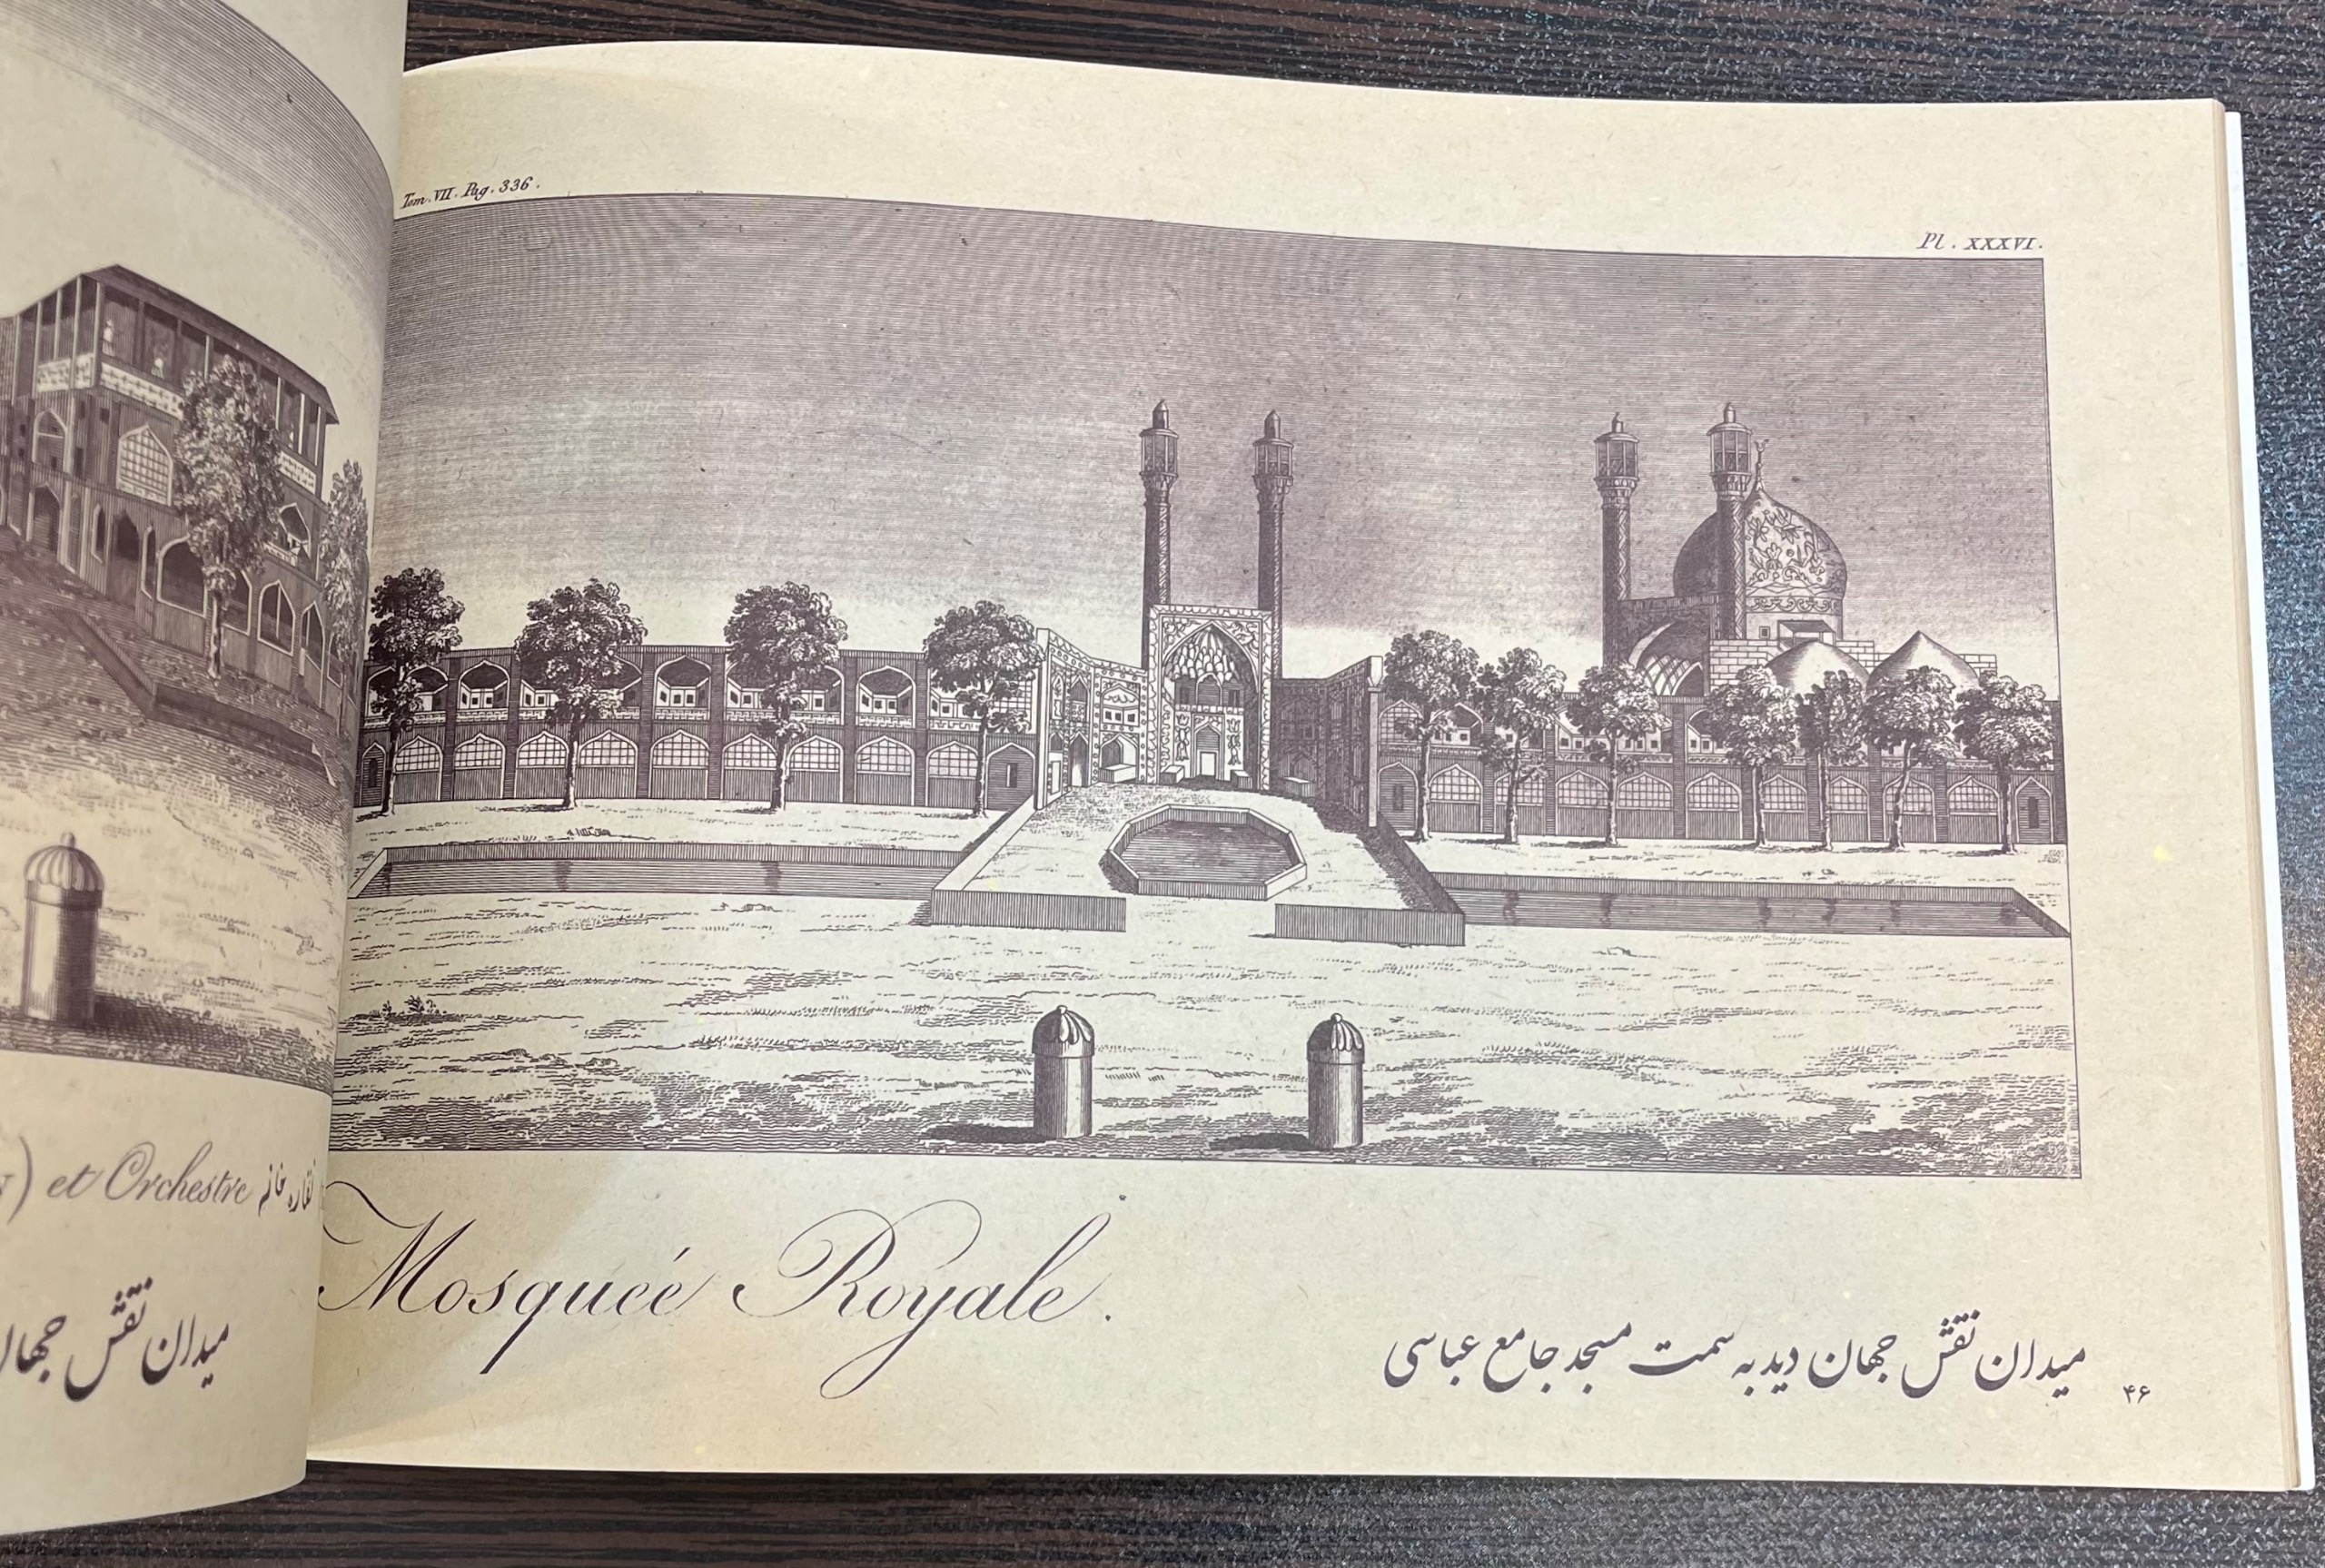 ) et Orchestre نقاره خانه
میدان نقش جهان
Tom. VII. Pag. 336.
Pl. XXXVI.
Mosquée Royale.
میدان نقش جهان دید به سمت مسجد جامع عباسی
۴۶